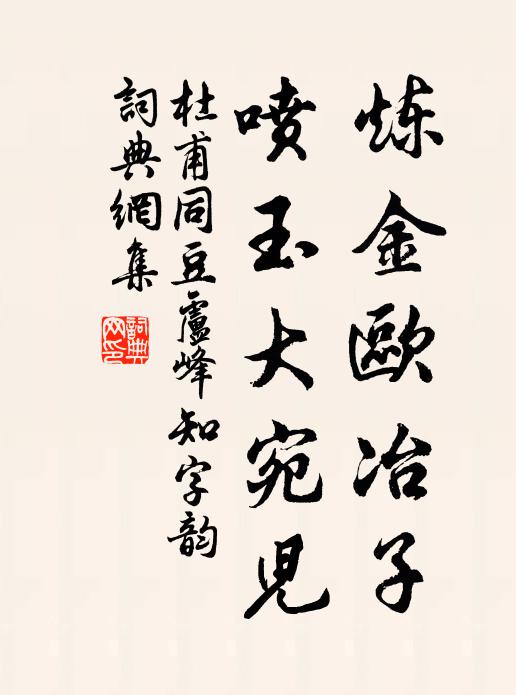 炼金歐冶子
喷玉大宛児
杜甫同豆盧峰知字韵
詞典網集
詞典网印